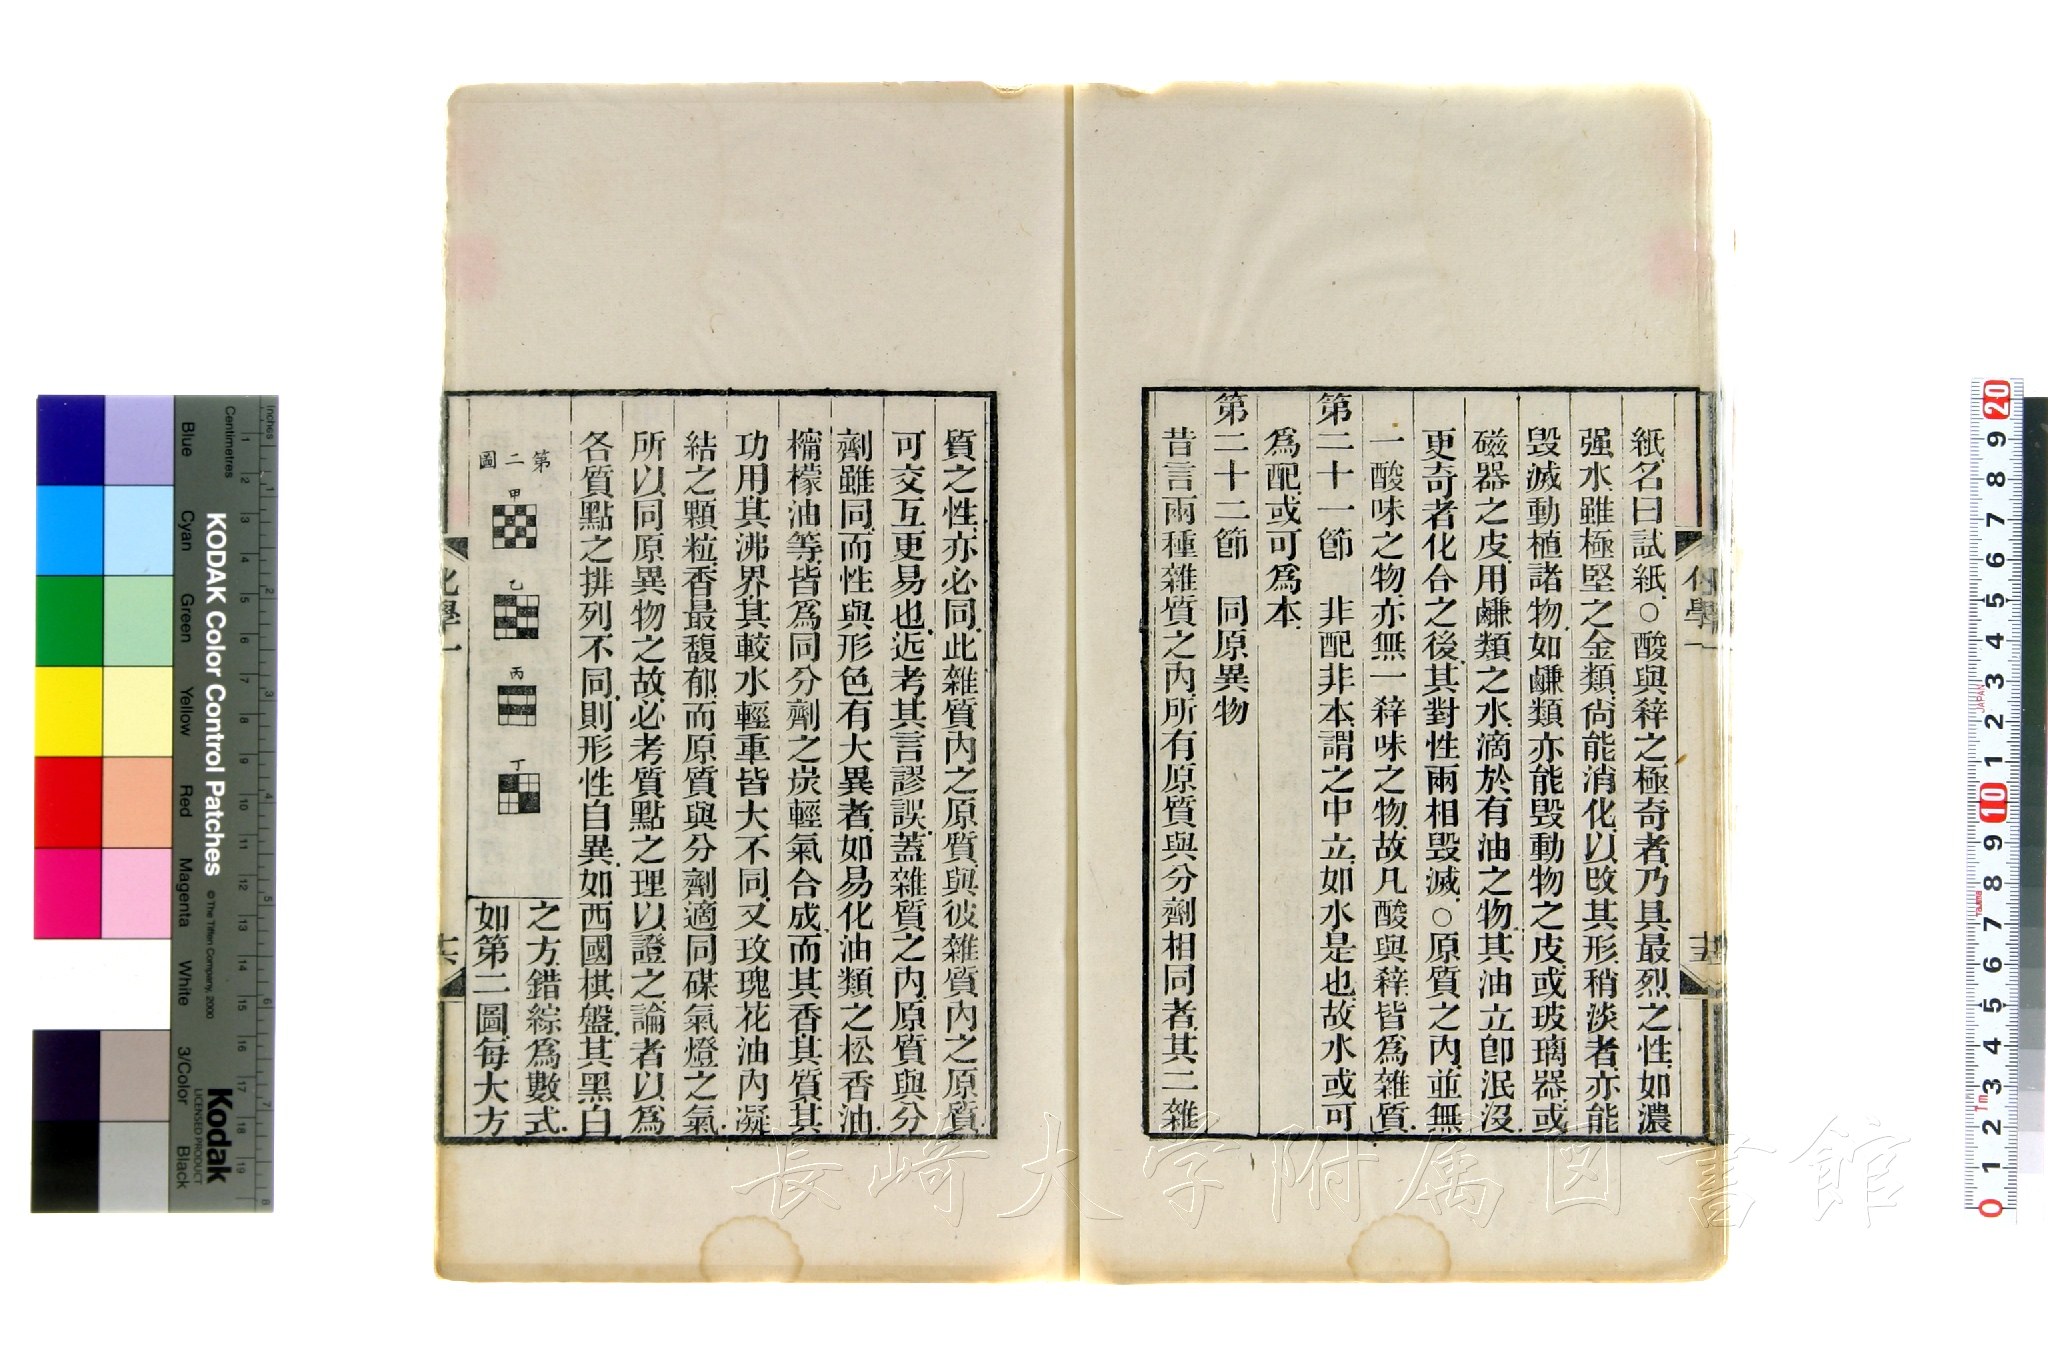 紙名曰試紙○酸與辢之極奇者乃具最烈之性如濃
强水雖極堅之金類尙能消化以改其形稍淡者亦能
毀滅動植諸物如鹻類亦能毀動物之皮或玻璃器或
磁器之皮用鹻類之水滴於有油之物其油立卽泯沒
更奇者化合之後其對性兩相毀滅○原質之內並無
一酸味之物亦無一辢味之物故凡酸與辢皆爲雜質
第二十一節　非配非本謂之中立如水是也故水或可
爲配或可爲本
第二十二節　同原異物
昔言兩種雜質之內所有原質與分劑相同者其二雜
化學一
十五
質之性亦必同此雜質內之原質與彼雜質內之原質
可交互更易也近考其言謬誤蓋雜質之內原質與分
劑雖同而性與形色有大異者如易化油類之松香油
檸檬油等皆爲同分劑之炭輕氣合成而其香其質其
功用其沸界其較水輕重皆大不同又玫瑰花油內凝
結之顆粒香最馥郁而原質與分劑適同煤氣燈之氣
所以同原異物之故必考質點之理以證之論者以爲
各質點之排列不同則形性自異如西國棋盤其黑白
第二圖
甲
乙
丙
丁
之方錯綜爲數式
如第二圖每大方
化學一
十六
KODAK Color Control Patches
© The Tiffen Company, 2000
Kodak
LICENSED PRODUCT
Inches
Centimetres
Blue
Cyan
Green
Yellow
Red
Magenta
White
3/Color
Black
長崎大学附属図書館
JAPAN